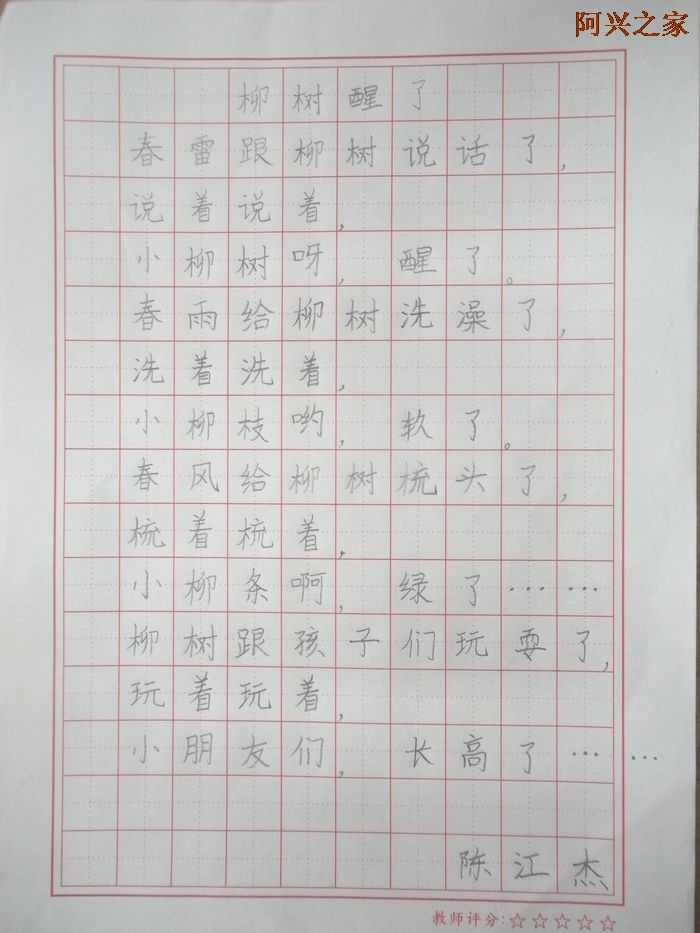 阿兴之家
柳树醒了
春雷跟柳树说话了,
说着说着,
小柳树呀,醒了。
春雨给柳树洗澡了,
洗着洗着,
小柳枝哟,软了。
春风给柳树梳头了,
梳着梳着,
小柳条啊,绿了……
柳树跟孩子们玩耍了,
玩着玩着,
小朋友们,长高了……
陈江杰
教师评分:☆☆☆☆☆